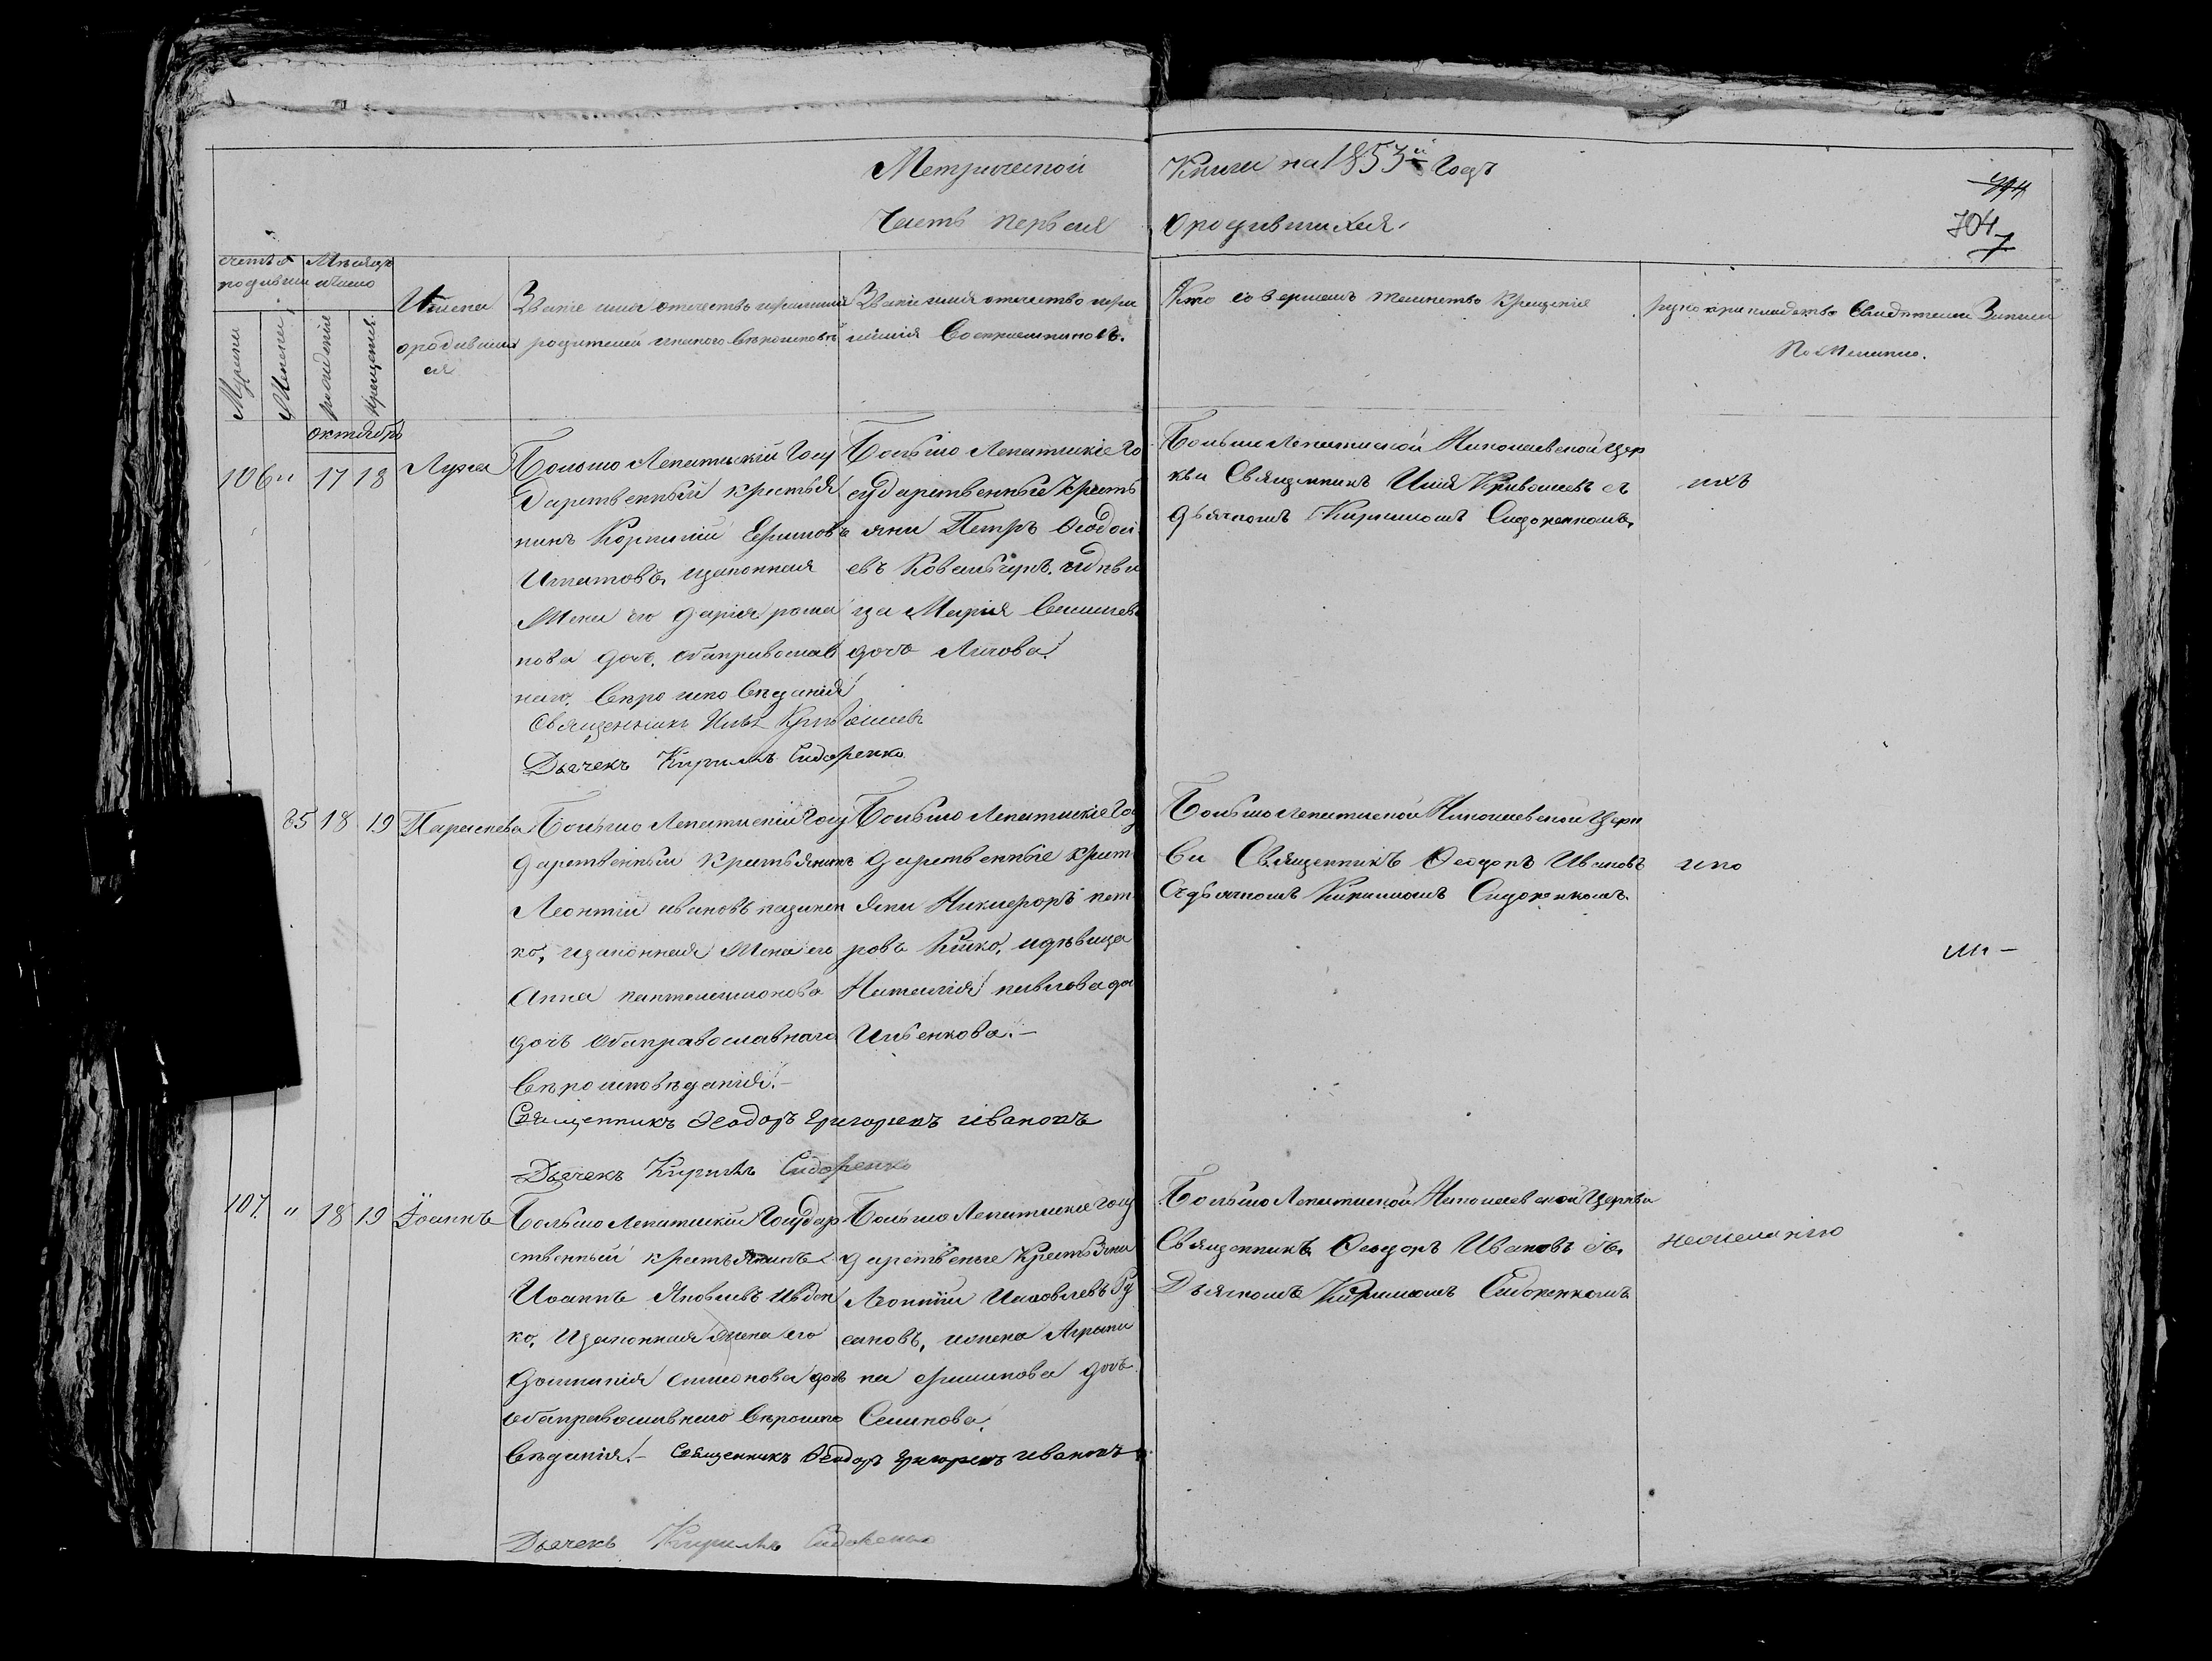 Метрической Книги на 1853й Годъ
Часть первая о родившихся
704
7
счетъ родивши
Мѣсяцъ и число
Мужеска
Женска
рожденія
крещенія
Имена родившихся
Званіе имя отечество и фамилія родителей и какого вѣроисповѣ
Званіе имя отечество и фамилія Воспріемниковъ.
Кто совершалъ таинство крещенія
рукоприкладство Свидѣтелей Записи
По желанію.
октябрь
106 " 17 18 Лука
Больше Лепатискій Госу
дарственный крестья
нинъ Корнилій Ефимовъ
Игнатовъ, изаконная
Жена его Дарія рома
нова дочь, оба православ
наго, Вѣро испо Вѣданія
Священникъ Илія Кривошеевъ
Дьячекъ Кириллъ Сидоренко
Больше Лепатискіе Го
сударственные кресть
яни Петръ Ѳеодосі
евъ Ковальчукъ, и дѣви
ца Марія Василіева
дочь Личова.
Больше Лепатиской Николаевской Цер
кви Священникъ Илія Кривошеевъ съ
дьячкомъ Кирилломъ Сидоренкомъ,
85 18 19 Параскева
Больше Лепатискій Госу
дарственный крестьянинъ
Леонтій ивановъ
ко, изаконная Жена его
Анна пантелеимонова
дочь оба православнаго
Вѣроисповѣданія.
Священникъ Ѳеодоръ Григорьевъ ивановъ
Дьячекъ Кириллъ Сидоренко
Больше Лепатискіе Госу
дарственные крест
яни Никифоръ пет
ровъ Кико, и дѣвица
Наталія павлова до
Ильенкова.
Больше Лепатиской Николаевской Церк
ви Священникъ Ѳеодоръ Ивановъ
Съ дьячкомъ Кирилломъ Сидоренкомъ.
107 " 18 19 Іоаннъ
Больше Лепатискій Государ
ственный крестьянинъ
Иоаннъ Яковлевъ Ивден
ко, Изаконная жена его
Домникія симонова дочь
оба православнаго Вѣроиспо
Вѣданія. Священникъ Ѳеодоръ Григорьевъ ивановъ
Дьячекъ Кириллъ Сидоренко
Больше Лепатискіе Госу
дарственые Крестьяни
Леонтій Иаковлевъ Ру
сановъ, и жена Агрипи
на филипова дочь
Семикова.
Больше Лепатиской Николаевской Церкви
Священникъ Ѳеодоръ Ивановъ съ,
Дьячкомъ Кирилломъ Сидоренкомъ